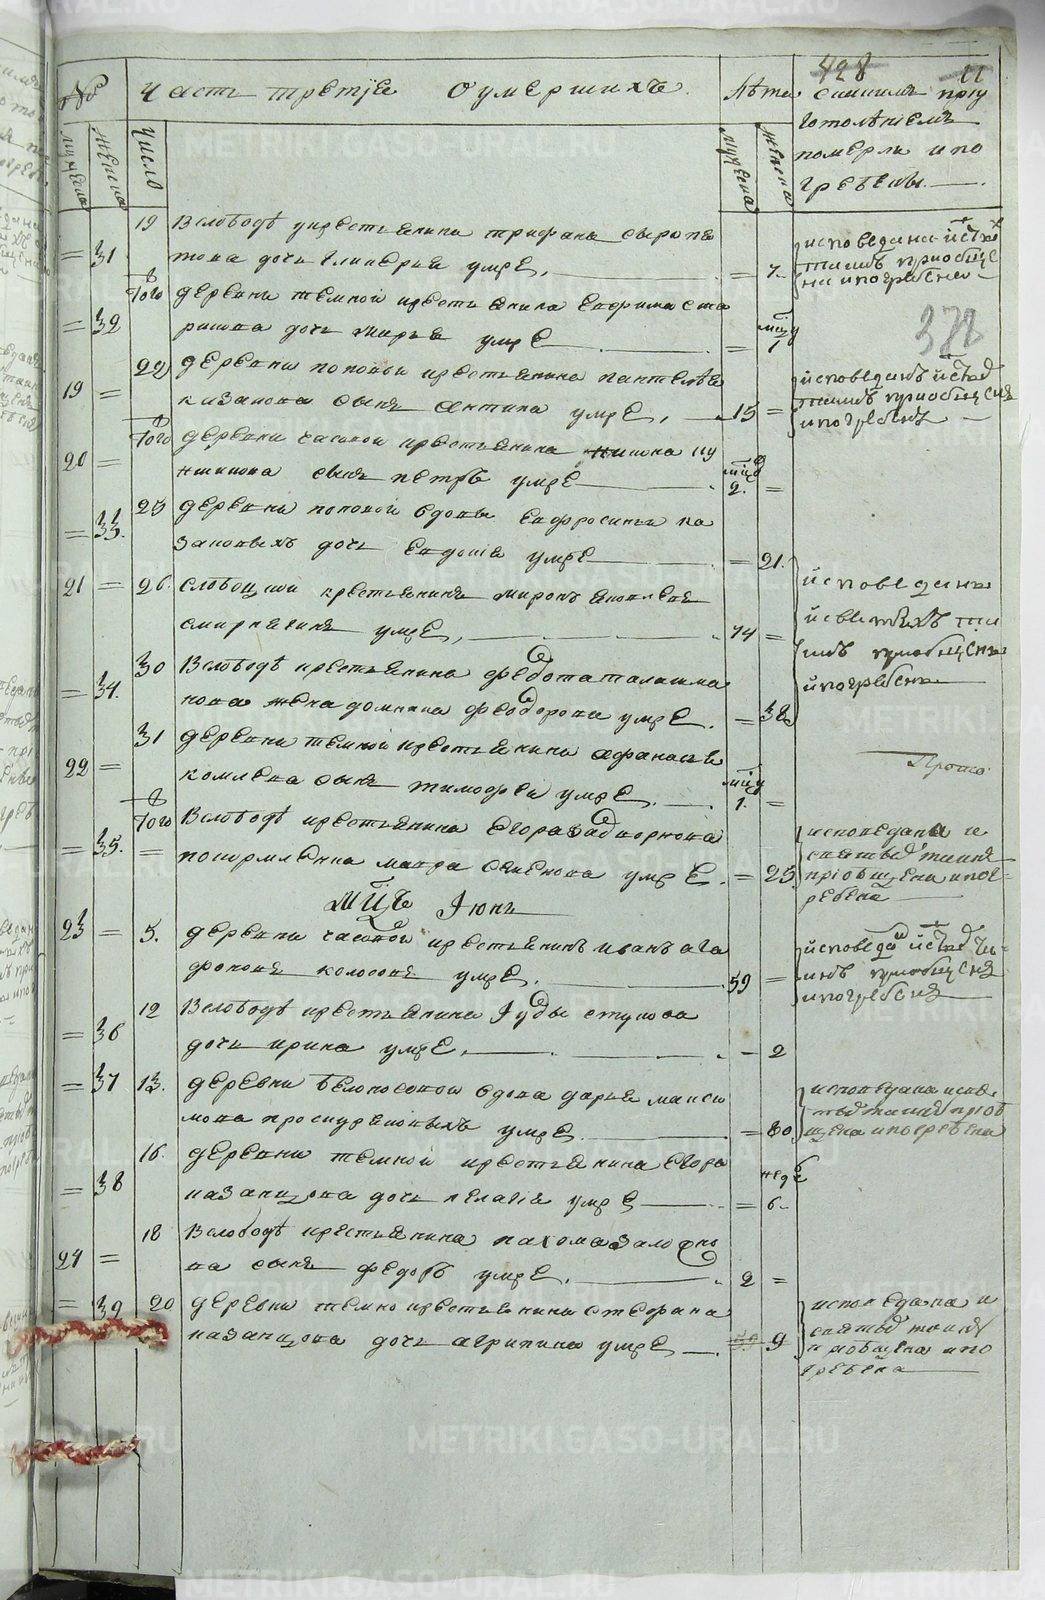 428 11
№ Часть третїя Оумершихъ. Лѣта
с какимъ прїу
готовлѣнїемъ
померли и по
гребены.
мужеска женска Число мужеска женска
= 31 19 В слободѣ у крестьянина трифана сыропя
това дочь гликерья умре, = 7.
исповедана и
таинъ приобще
на и погребена
= 32 Того деревни темной крестьянина Ефрима Ста
рикова дочь марья умре = мцу 1
372
19 = 22 деревни поповой крестьянина пантелѣя
казакова сынъ Антипа умре, 15 =
исповеданъ и
таинъ приобщенъ
и погребенъ
20 = Того деревни часовой крестьянина
сынъ петръ умре мцъ 2. =
= 33. 25 деревни поповой вдовы Евфросиньи ка
заковыхъ дочь Евдокїя умре = 21.
21 = 26. слобоцкой крестьянинъ миронъ яковлевъ
смирнягинъ умре, 74 =
исповеданы
и святыхъ та
инъ приобщены
и погребены
= 34. 30 В слободѣ крестьянина федота талашма
нова жена домника феодорова умре. = 38
22 = 31 деревни темной крестьянина афанасья
комлева сынъ тимофей умре. мцу 1. =
= 35. = Того В слободѣ крестьянина Егора
покормленка мавра семенова умре. = 25
исповедана и
святыхъ таинъ
прїобщена и пог-
ребена
Мцъ Iюнь
23 = 5. деревни часовой крестьянинъ иванъ ага
фоновъ колосовъ умре. 59 =
исповеданъ и
инъ приобщенъ
и погребенъ
= 36 12 В слободѣ крестьянина Iуды стукова
дочь ирина умре. = 2
= 37 13. деревни белоносовой вдова дарья макси
мова проскуряковыхъ умре = 80
исповедана и свя
тыхъ таинъ прїоб
щена и погребена
= 38 16. деревни темной крестьянина Егора
казанцова дочь пелагїя умре = недѣ 6.
24 = 18 В слободѣ крестьянина пахома
ва сынъ федоръ умре. 2 =
= 39 20 деревни темно крестьянина стефана
казанцова дочь агрипина умре 9
исповедана и
святыхъ таинъ
прїобщена и по
гребена
METRIKI.GASO-URAL.RU